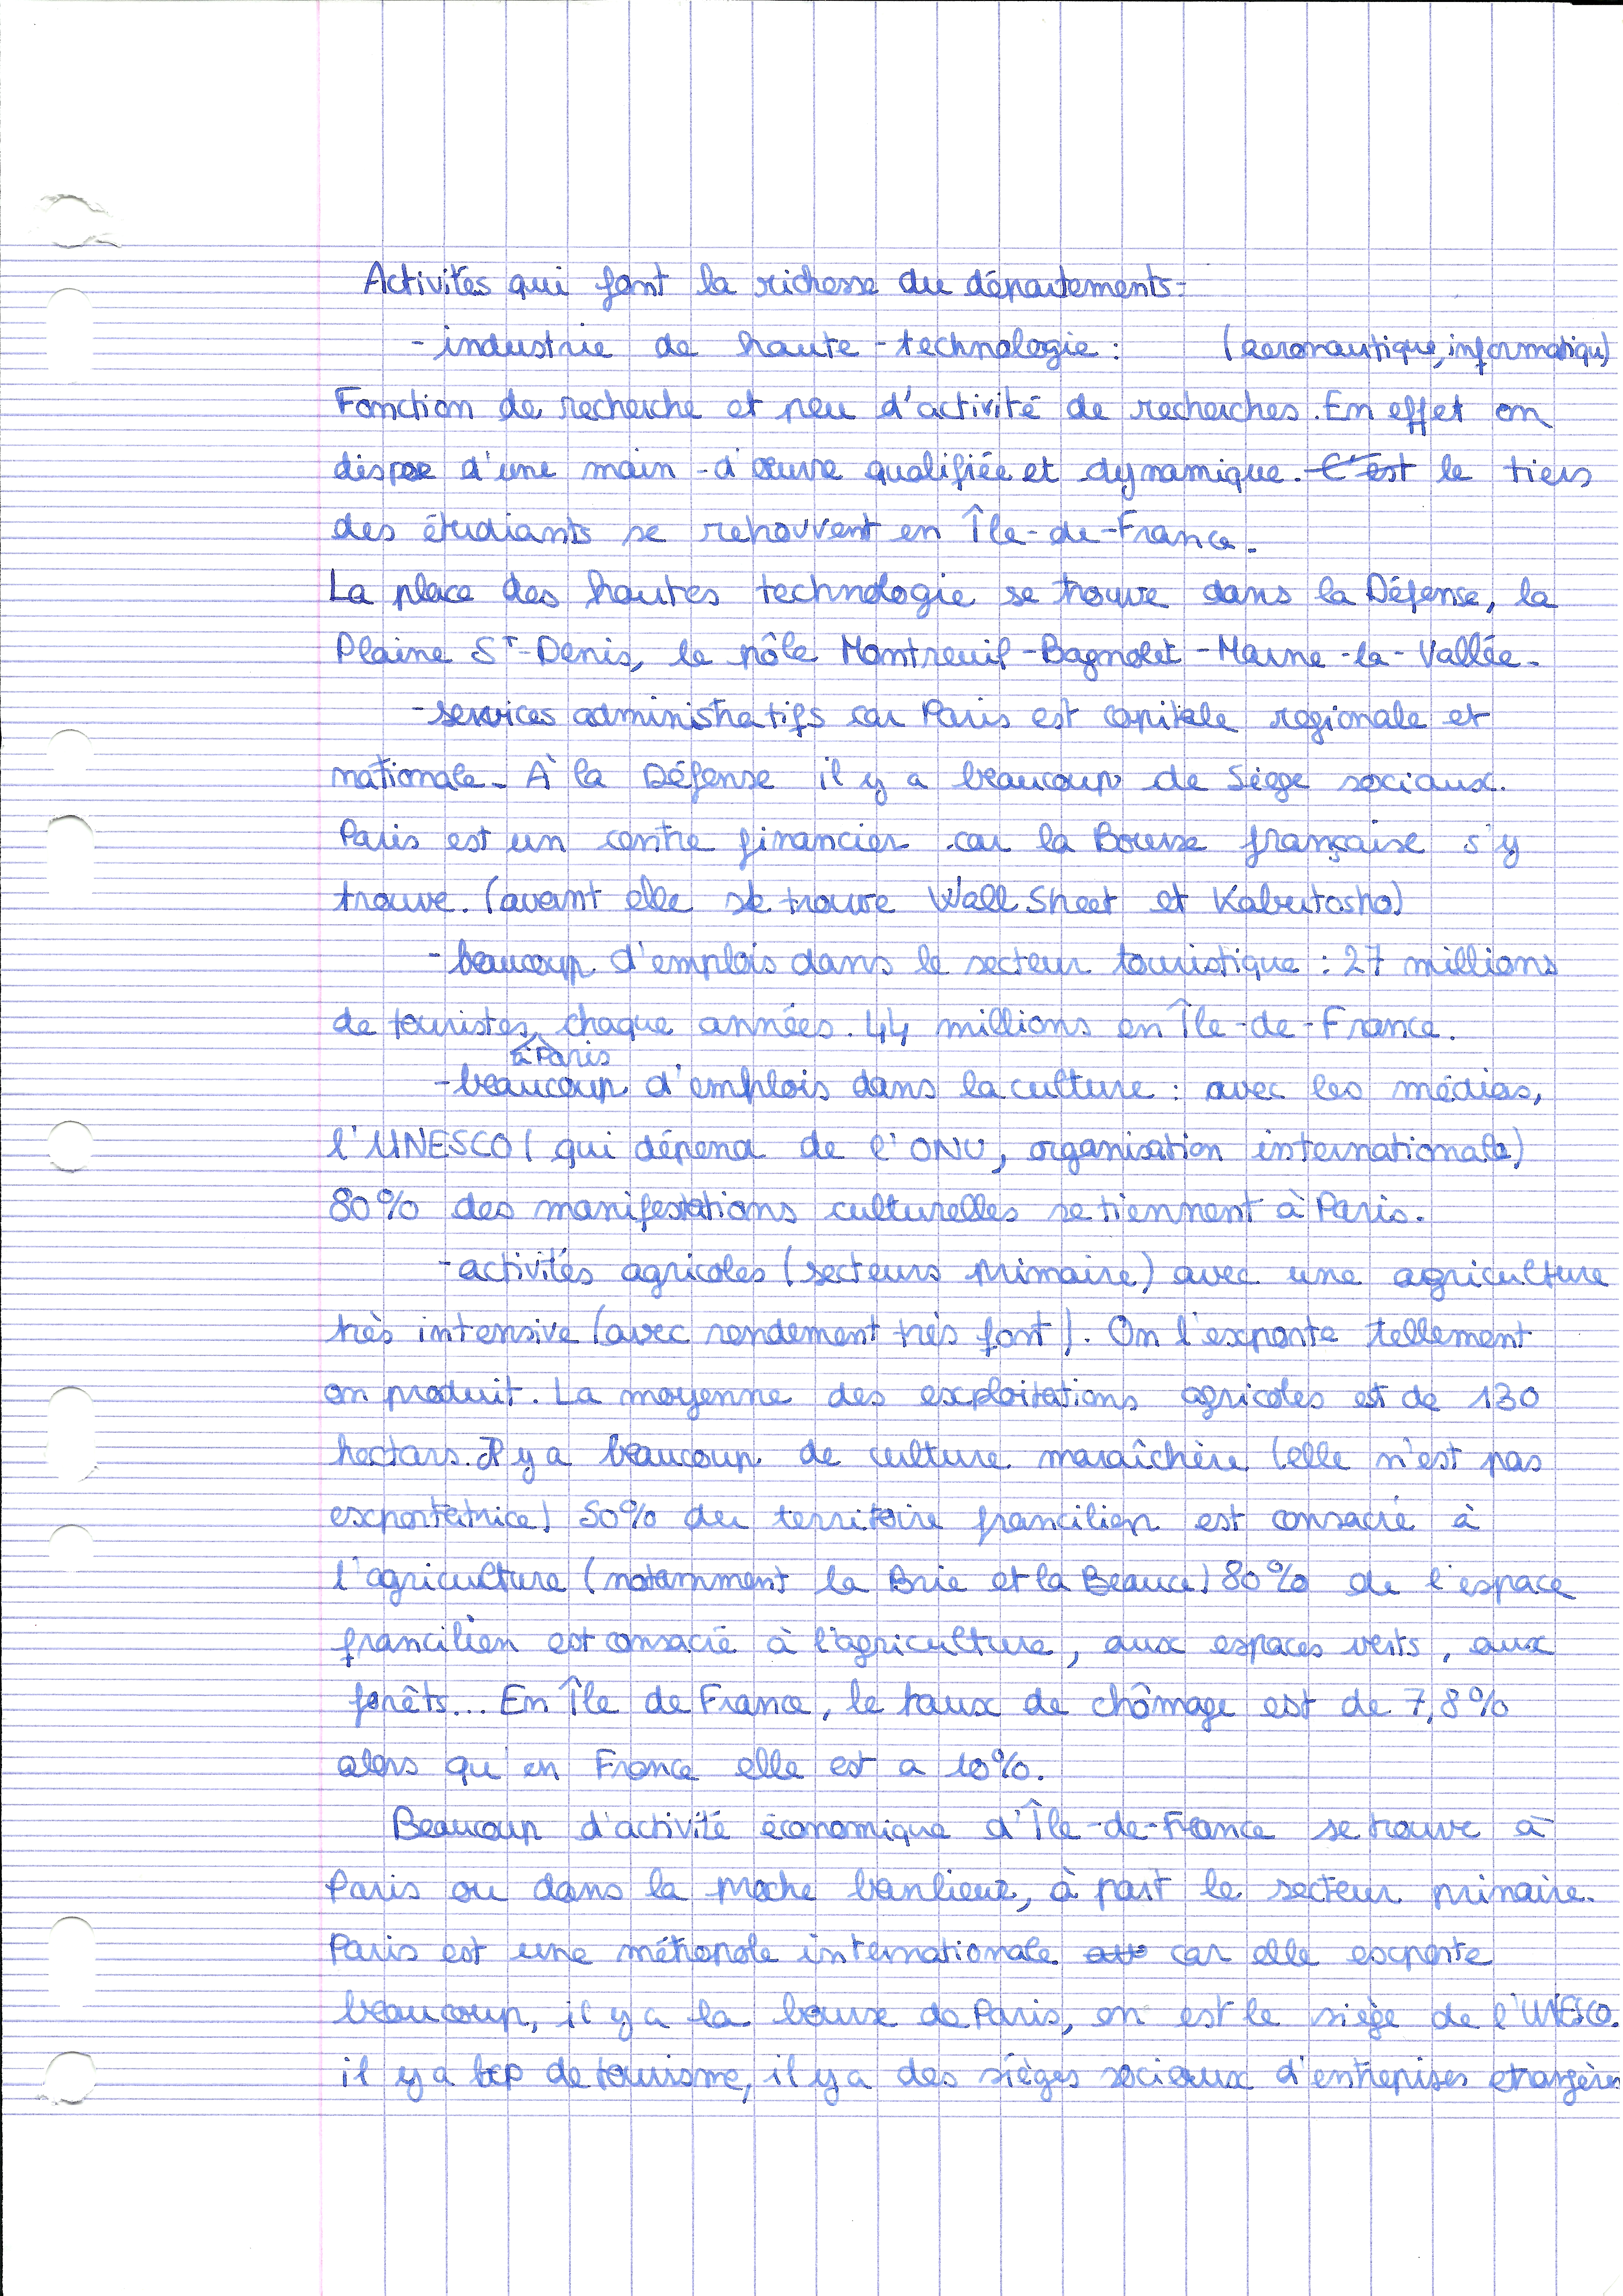 Activités qui font la richesse du départements.
- industrie de haute-technologie : (aeronautique, informatique)
Fonction de recherche et peu d'activité de recherches. En effet on
dispose d'une main-d'œuvre qualifiée et dynamique. C'est le tiers
des étudiants se retrouvent en Île-de-France.
La place des hautes technologie se trouve dans la Défense, la
Plaine St-Denis, le pôle Montreuil-Bagnolet-Marne-la-Vallée.
- services administratifs car Paris est capitale regionale et
nationale. À la Défense il y a beaucoup de Siège sociaux.
Paris est un centre financier car la Bourse française s'y
trouve. (avant elle se trouve Wall Street et Kabutosho)
- beaucoup d'emplois dans le secteur touristique : 27 millions
de touristes à Paris chaque années. 44 millions en Île-de-France.
- beaucoup d'emplois dans la culture : avec les médias,
l'UNESCO (qui dépend de l'ONU, organisation internationale)
80% des manifestations culturelles se tiennent à Paris.
- activités agricoles (secteurs primaire) avec une agriculture
très intensive (avec rendement très fort). On l'exporte tellement
on produit. La moyenne des exploitations agricoles est de 130
hectars. Il y a beaucoup de culture maraîchère (elle n'est pas
exportatrice) 50% du territoire francilien est consacré à
l'agriculture (notamment la Brie et la Beauce) 80% de l'espace
francilien est consacré à l'agriculture, aux espaces verts, aux
forêts... En Île de France, le taux de chômage est de 7,8%
alors qu'en France elle est a 10%.
Beaucoup d'activité économique d'Île-de-France se trouve à
Paris ou dans la proche banlieue, à part le secteur primaire.
Paris est une métropole internationale car elle exporte
beaucoup, il y a la bourse de Paris, on est le siège de l'UNESCO.
il y a bcp de tourisme, il y a des sièges sociaux d'entreprises etrangères